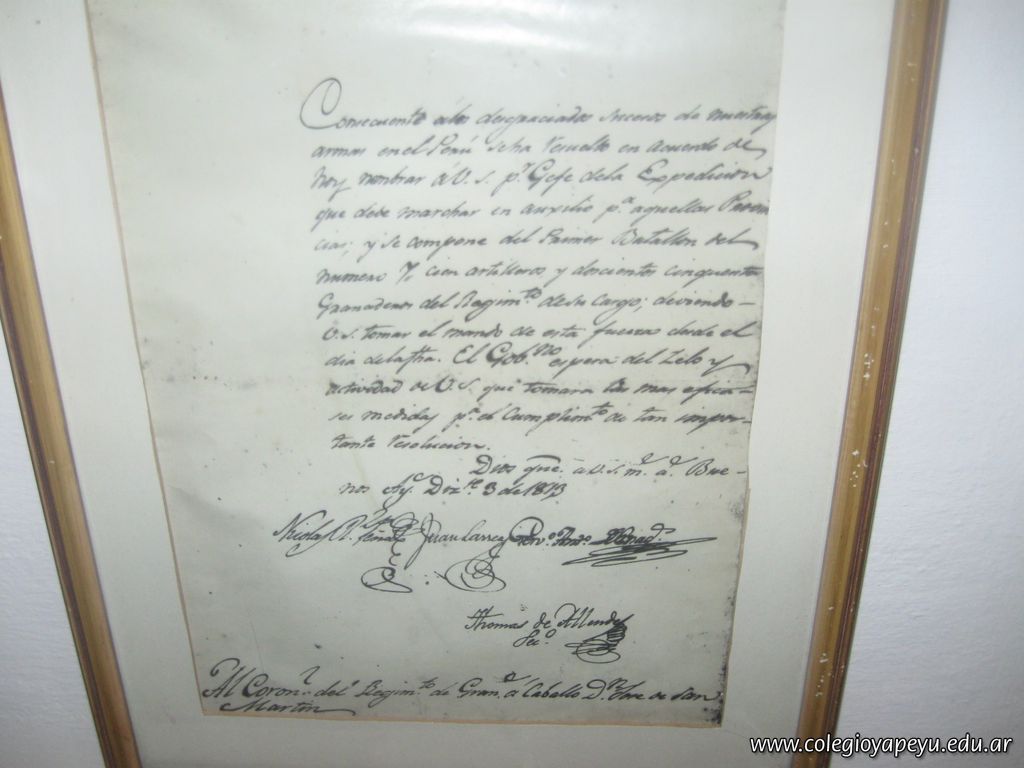 Consecuente á los desgraciados sucesos de nuestras
armas en el Perú se ha resuelto en acuerdo de
hoy nombrar á V. S. pr. Gefe de la Expedicion
que debe marchar en auxilio pa. aquellas Provin
cias; y se compone del Primer Batallon del
numero 7, cien artilleros y doscientos cinquenta
Granaderos del Regimto. de su Cargo; deviendo
V. S. tomar el mando de esta fuerza desde el
dia de la fha. El Gobno. espera del Zelo y
actividad de V. S. que tomará las mas efica-
ses medidas pa. el Cumplimto. de tan impor-
tante resolucion.
Dios gue. a V. S. ms. as. Bue-
nos Ays. Dize. 3 de 1813
Nicolas Rz. Peña Juan Larrea Gervo. Anto. Posadas
Thomas de Allende
Seco.
Al Coronl. del Regimto. de Grans. á Caballo Dn. Jose de San
Martin
www.colegioyapeyu.edu.ar